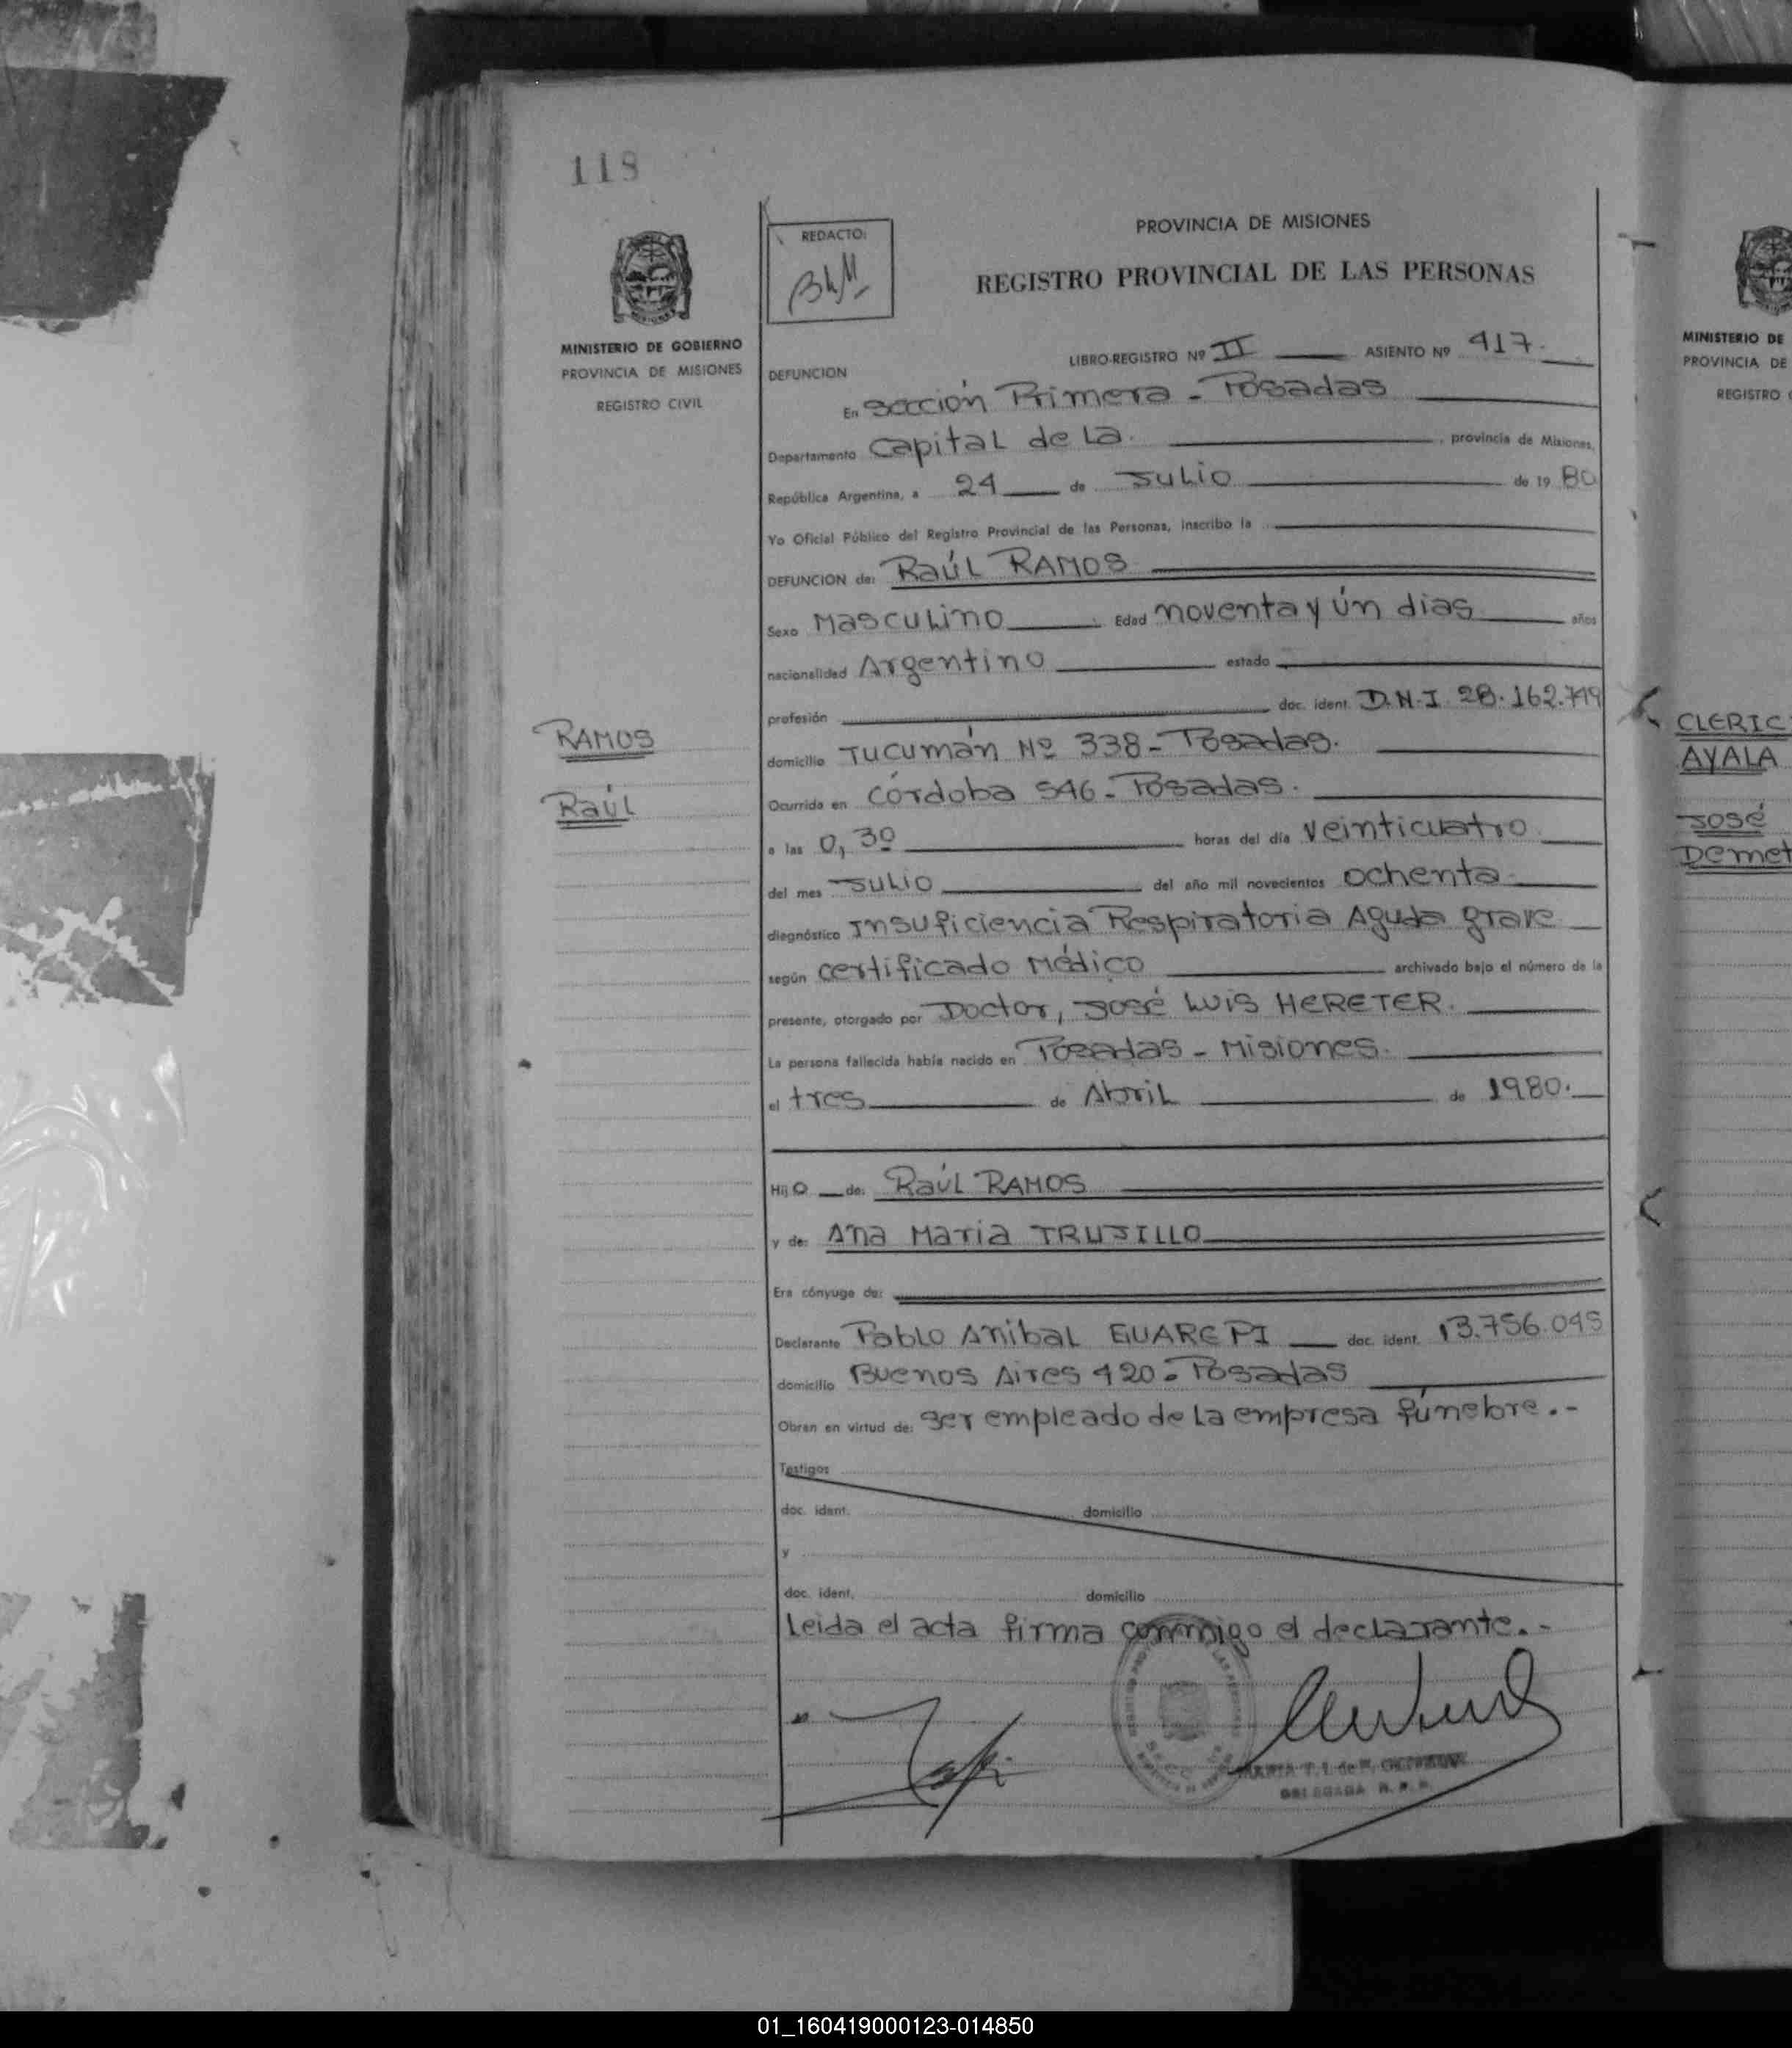 118
REDACTO:
PROVINCIA DE MISIONES
REGISTRO PROVINCIAL DE LAS PERSONAS
MINISTERIO DE GOBIERNO
PROVINCIA DE MISIONES
REGISTRO CIVIL
LIBRO-REGISTRO Nº II ASIENTO Nº 417.
DEFUNCION
En Sección Primera - Posadas
Departamento Capital de La. , provincia de Misiones,
República Argentina, a 24 de Julio de 19 80
Yo Oficial Público del Registro Provincial de las Personas, inscribo la
DEFUNCION de: Raúl RAMOS
Sexo Masculino Edad noventa y ún dias años
nacionalidad Argentino estado
profesión doc. ident. D.N.I. 28.162.749
domicilio Tucumán Nº 338 - Posadas.
Ocurrida en Córdoba 546 - Posadas.
a las 0,30 horas del día veinticuatro
del mes Julio del año mil novecientos ochenta
diagnóstico Insuficiencia Respiratoria Aguda grave
según certificado Médico archivado bajo el número de la
presente, otorgado por Doctor, José Luis HERETER.
La persona fallecida había nacido en Posadas - Misiones.
el tres de Abril de 1980.
Hijo de: Raúl RAMOS
y de: Ana Maria TRUJILLO
Era cónyuge de:
Declarante Pablo Anibal GUAREPI doc. ident. 13.756.045
domicilio Buenos Aires 420 - Posadas
Obran en virtud de: ser empleado de la empresa fúnebre.-
Testigos
doc. ident. domicilio
y
doc. ident. domicilio
Leida el acta firma conmigo el declarante.-
DELEGADA R. P. P.
RAMOS
Raúl
MINISTERIO DE
PROVINCIA DE
REGISTRO
CLERIC
AYALA
José
Demet
01_160419000123-014850